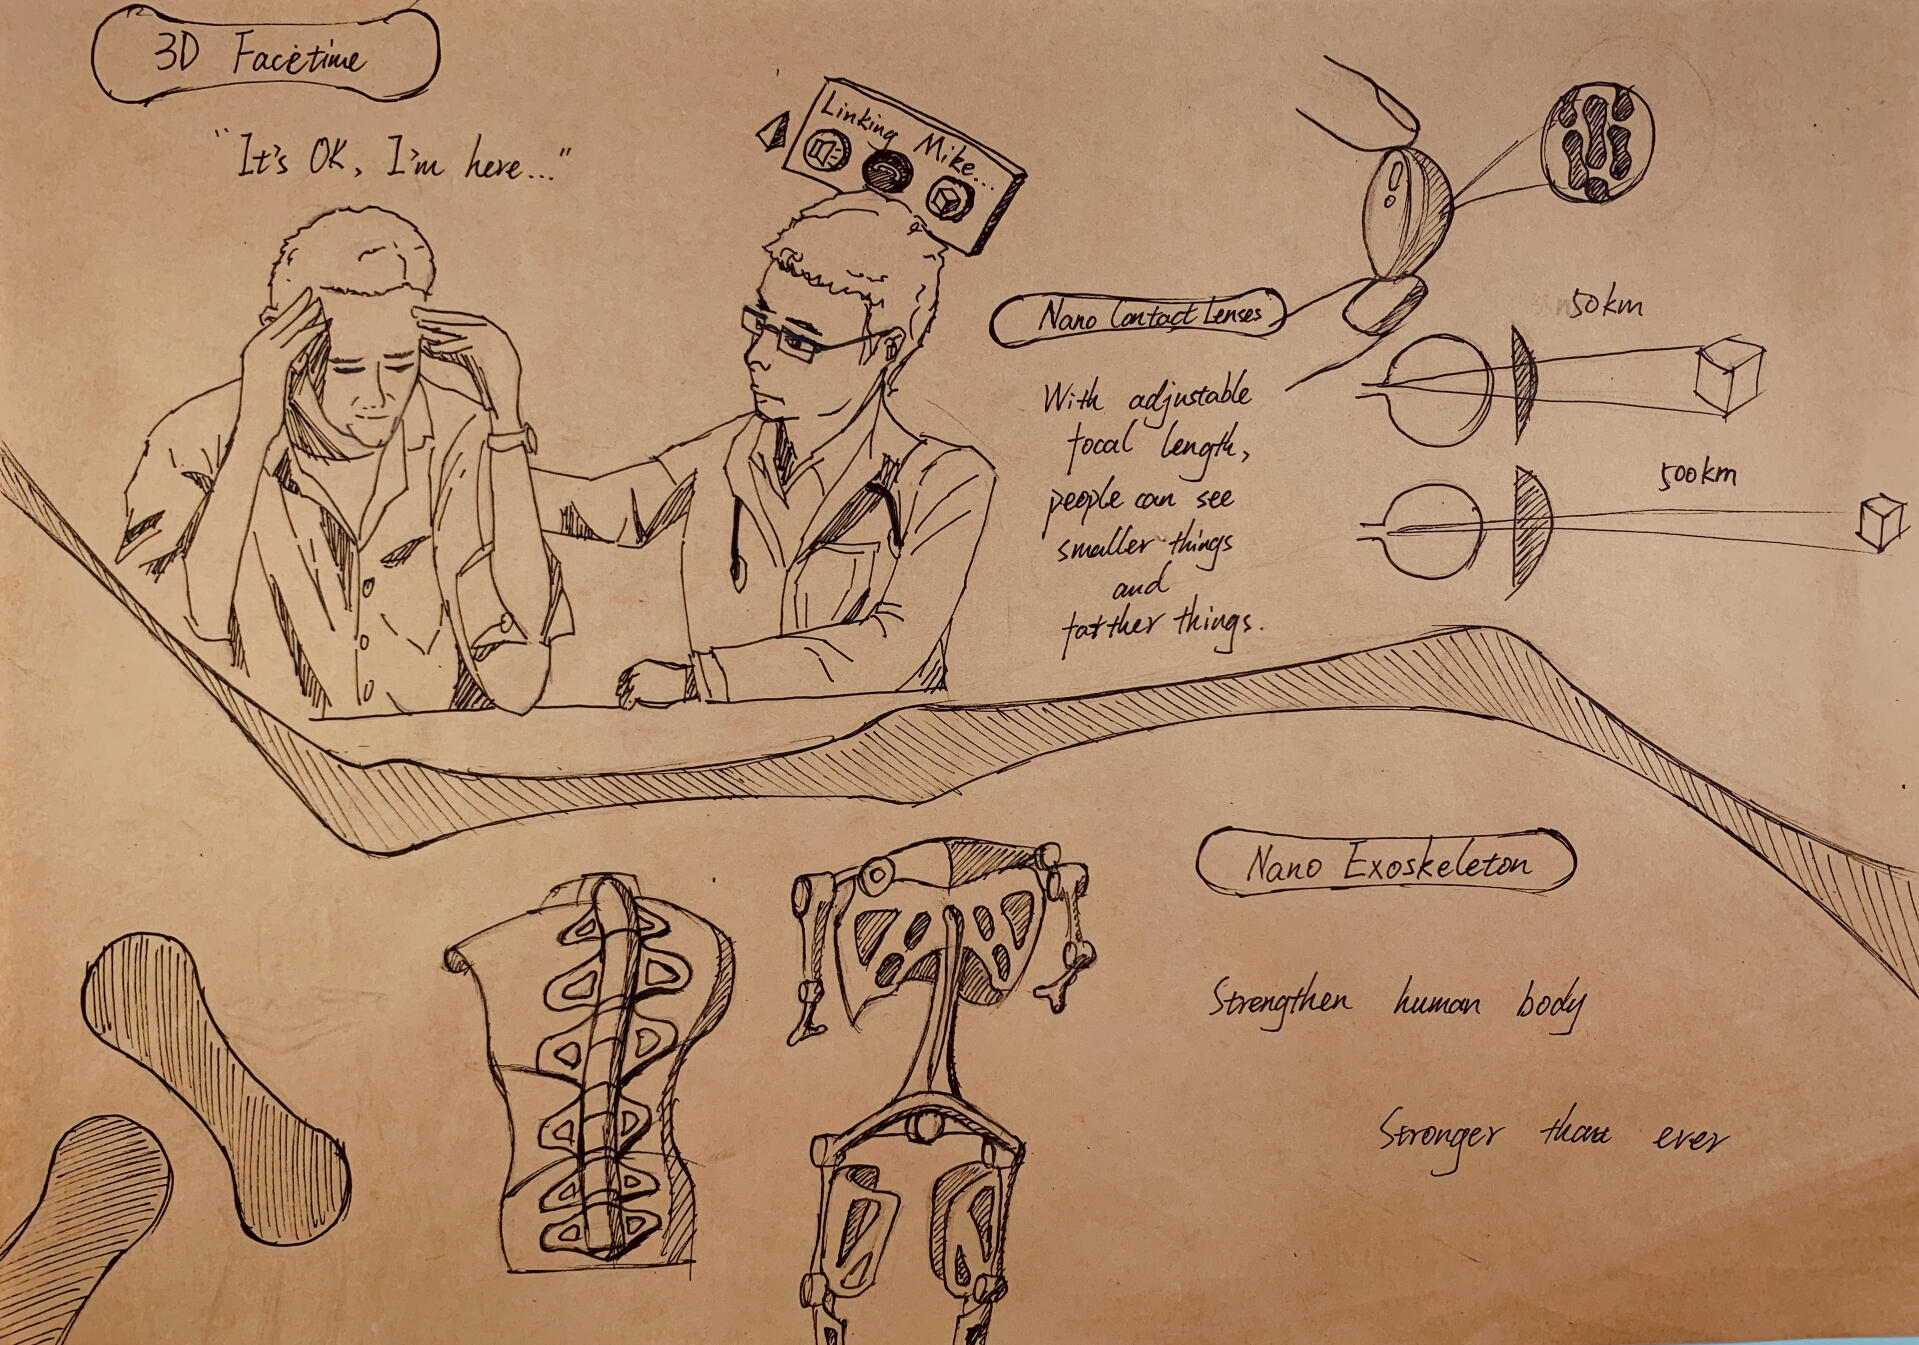 3D Facetime
"It's OK, I'm here..."
Linking
Mike...
Nano Contact Lenses
With adjustable
focal length,
people can see
smaller things
and
farther things.
50km
500km
Nano Exoskeleton
Strengthen human body
Stronger than ever